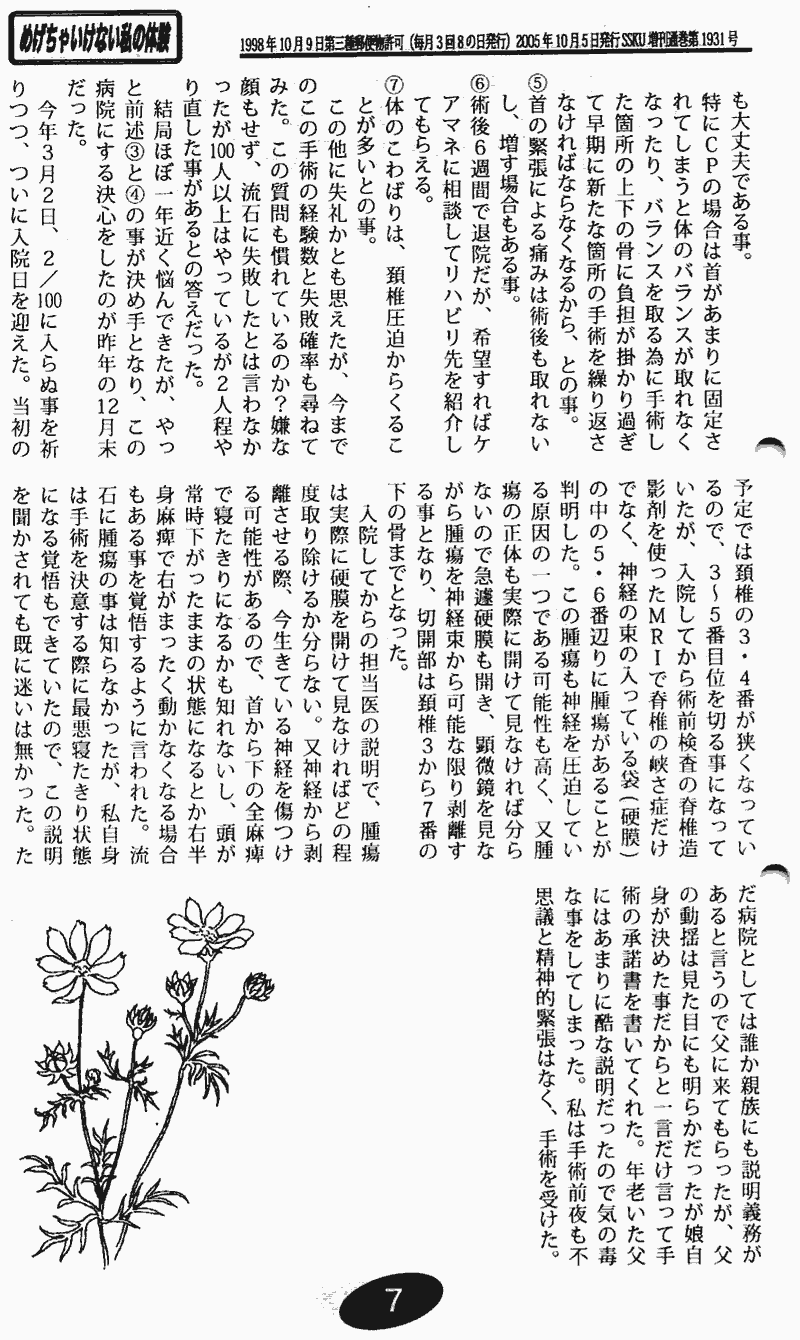 めげちゃいけない私の体験
1998年10月9日第三種郵便物許可（毎月3回8の日発行）2005年10月5日発行SSKU増刊通巻第1931号
も大丈夫である事。
特にCPの場合は首があまりに固定さ
れてしまうと体のバランスが取れなく
なったり、バランスを取る為に手術し
た箇所の上下の骨に負担が掛かり過ぎ
て早期に新たな箇所の手術を繰り返さ
なければならなくなるから、との事。
⑤首の緊張による痛みは術後も取れない
し、増す場合もある事。
⑥術後6週間で退院だが、希望すればケ
アマネに相談してリハビリ先を紹介し
てもらえる。
⑦体のこわばりは、頚椎圧迫からくるこ
とが多いとの事。
この他に失礼かとも思えたが、今まで
のこの手術の経験数と失敗確率も尋ねて
みた。この質問も慣れているのか？嫌な
顔もせず、流石に失敗したとは言わなか
ったが100人以上はやっているが2人程や
り直した事があるとの答えだった。
結局ほぼ一年近く悩んできたが、やっ
と前述③と④の事が決め手となり、この
病院にする決心をしたのが昨年の12月末
だった。
今年3月2日、2／100に入らぬ事を祈
りつつ、ついに入院日を迎えた。当初の
予定では頚椎の3・4番が狭くなってい
るので、3〜5番目位を切る事になって
いたが、入院してから術前検査の脊椎造
影剤を使ったMRIで脊椎の峡さ症だけ
でなく、神経の束の入っている袋(硬膜)
の中の5・6番辺りに腫瘍があることが
判明した。この腫瘍も神経を圧迫してい
る原因の一つである可能性も高く、又腫
瘍の正体も実際に開けて見なければ分ら
ないので急遽硬膜も開き、顕微鏡を見な
がら腫瘍を神経束から可能な限り剥離す
る事となり、切開部は頚椎3から7番の
下の骨までとなった。
入院してからの担当医の説明で、腫瘍
は実際に硬膜を開けて見なければどの程
度取り除けるか分らない。又神経から剥
離させる際、今生きている神経を傷つけ
る可能性があるので、首から下の全麻痺
で寝たきりになるかも知れないし、頭が
常時下がったままの状態になるとか右半
身麻痺で右がまったく動かなくなる場合
もある事を覚悟するように言われた。流
石に腫瘍の事は知らなかったが、私自身
は手術を決意する際に最悪寝たきり状態
になる覚悟もできていたので、この説明
を聞かされても既に迷いは無かった。た
だ病院としては誰か親族にも説明義務が
あると言うので父に来てもらったが、父
の動揺は見た目にも明らかだったが娘自
身が決めた事だからと一言だけ言って手
術の承諾書を書いてくれた。年老いた父
にはあまりに酷な説明だったので気の毒
な事をしてしまった。私は手術前夜も不
思議と精神的緊張はなく、手術を受けた。
7